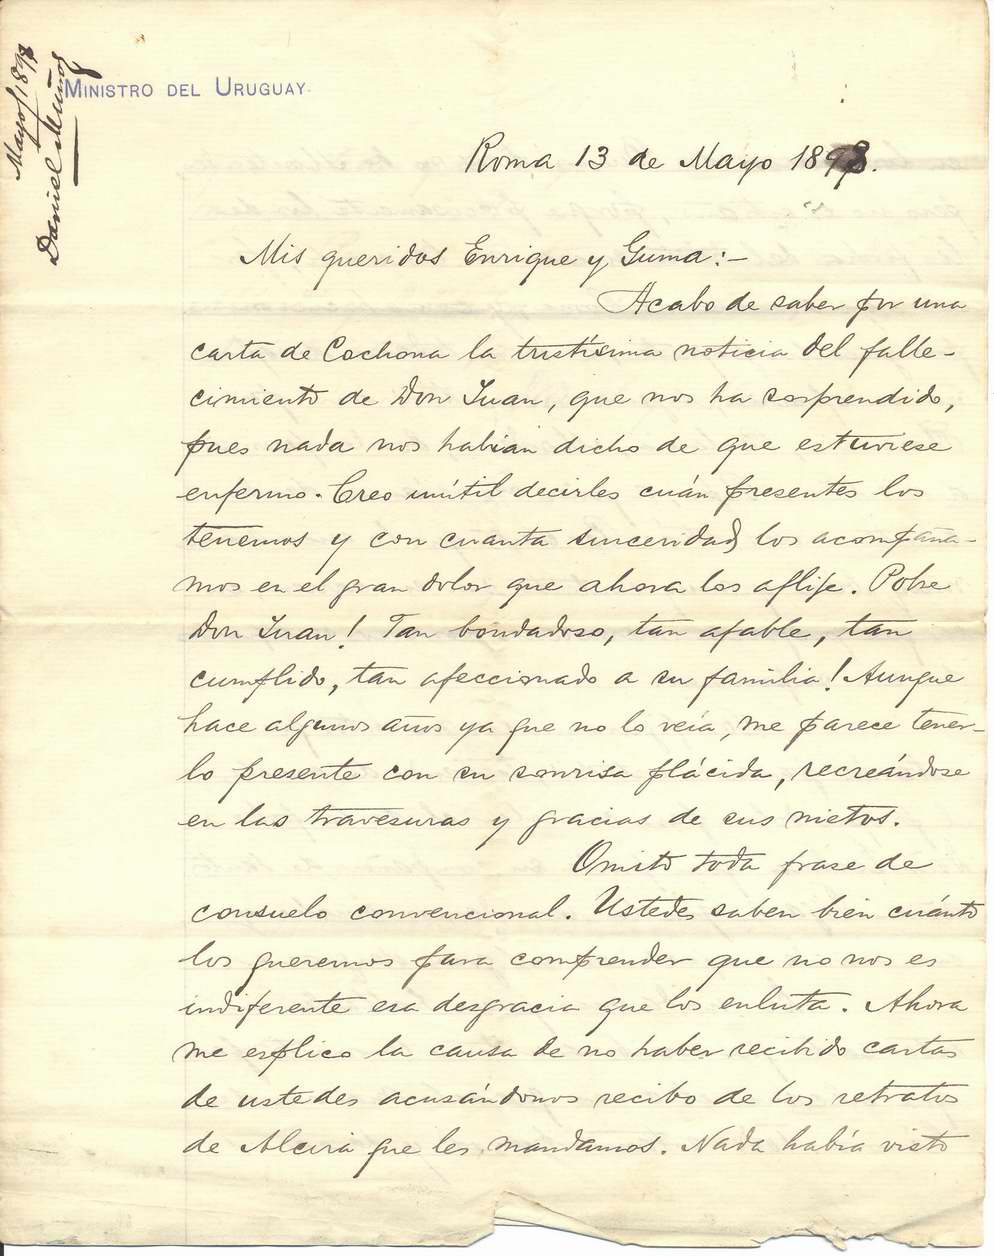 Mayo/1898
Daniel Muñoz
MINISTRO DEL URUGUAY
Roma 13 de Mayo 1898.
Mis queridos Enrique y Guma:-
Acabo de saber por una
carta de Cochona la tristísima noticia del falle-
cimiento de Don Juan, que nos ha sorprendido,
pues nada nos habían dicho de que estuviese
enfermo. Creo inútil decirles cuán presentes los
tenemos y con cuanta sinceridad los acompaña-
mos en el gran dolor que ahora los aflije. Pobre
Don Juan! Tan bondadoso, tan afable, tan
cumplido, tan afeccionado a su familia! Aunque
hace algunos años ya que no lo veía, me parece tener-
lo presente con su sonrisa plácida, recreándose
en las travesuras y gracias de sus nietos.
Omito toda frase de
consuelo convencional. Ustedes saben bien cuánto
los queremos para comprender que no nos es
indiferente esa desgracia que los enluta. Ahora
me esplico la causa de no haber recibido cartas
de ustedes acusándonos recibo de los retratos
de Alcira que les mandamos. Nada había visto